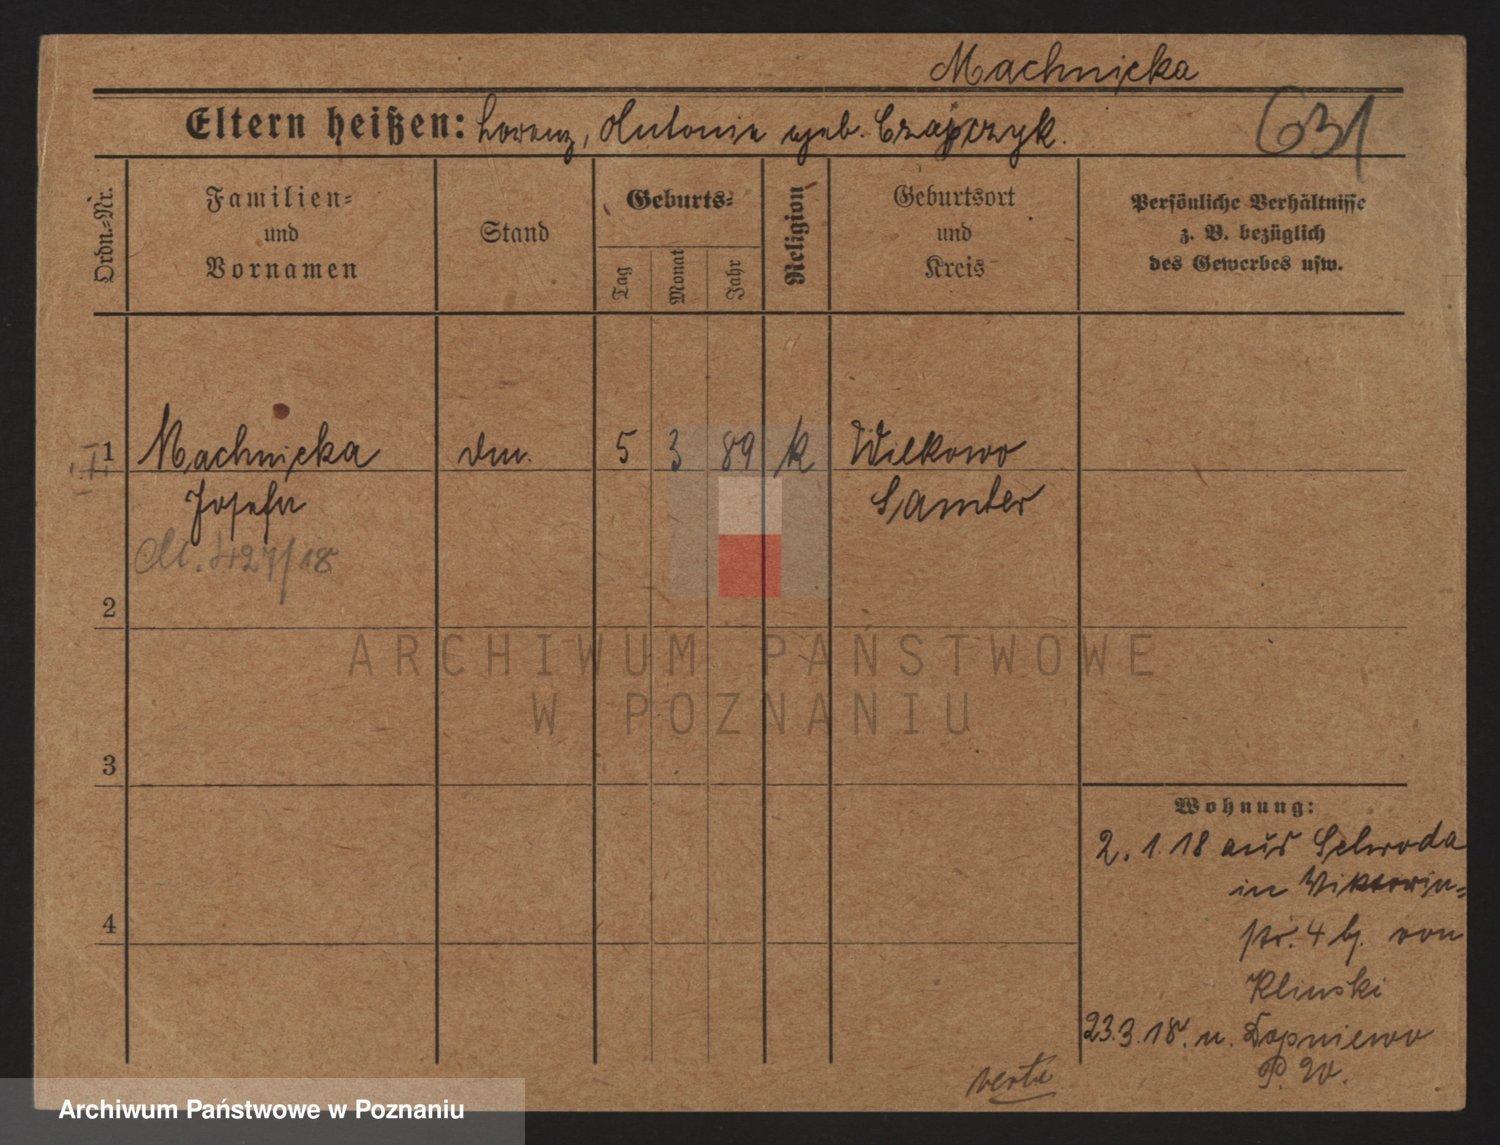 Machnicka
Eltern heißen: Lorenz, Antonie geb. Czajczyk.
631
Ordn.-Nr.
Familien-
und
Vornamen
Stand
Geburts-
Tag
Monat
Jahr
Religion
Geburtsort
und
Kreis
Persönliche Verhältnisse
z. B. bezüglich
des Gewerbes usw.
1 Machnicka 5 3 89 k Wilkowo
Josefa Samter
427/18
2
3
4
Wohnung:
2.1.18 aus Schroda
in Viktoria-
str. 4 bj. von
Klinski
23.3.18. n.
P. 20.
verte
ARCHIWUM PAŃSTWOWE
W POZNANIU
Archiwum Państwowe w Poznaniu